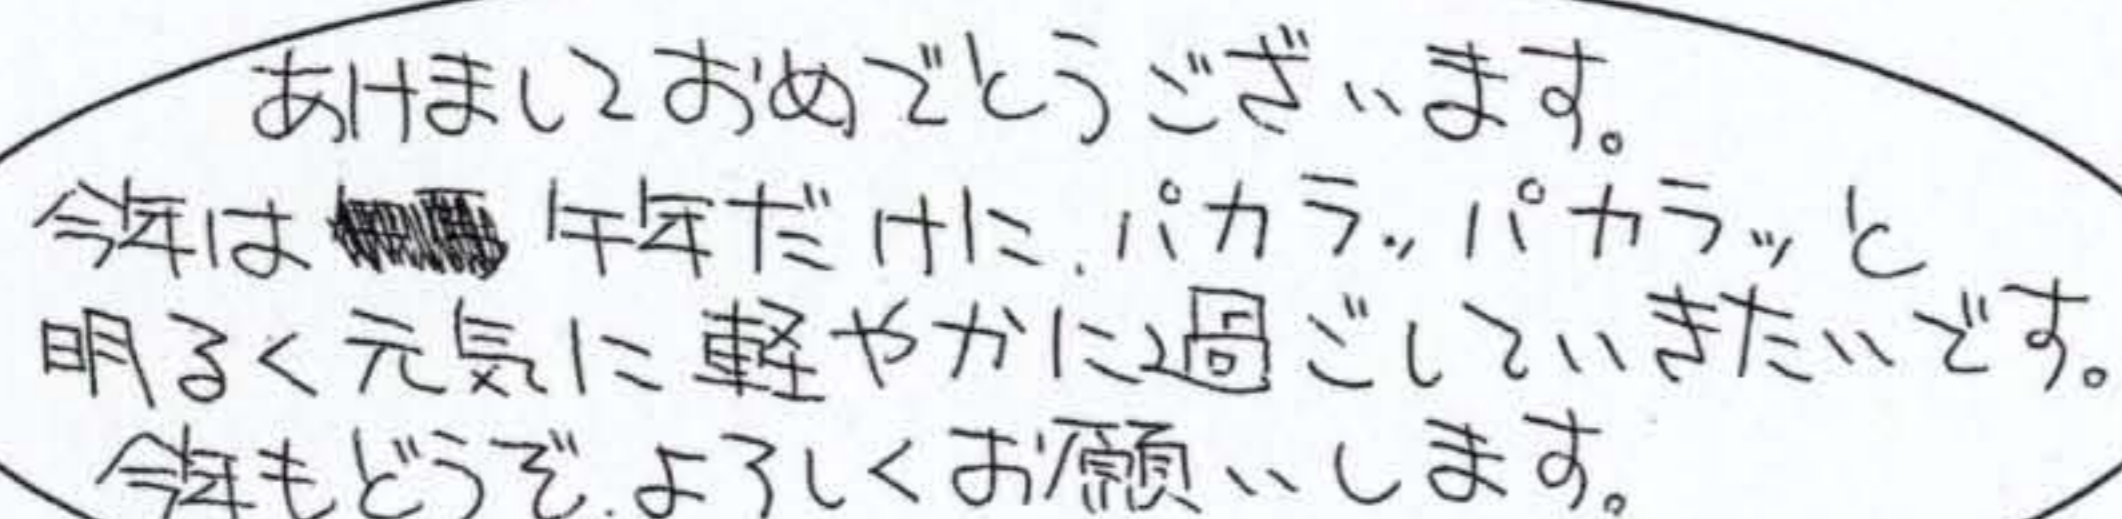 あけましておめでとうございます。
今年は 午年だけに、パカラッパカラッと
明るく元気に軽やかに過ごしていきたいです。
今年もどうぞ、よろしくお願いします。